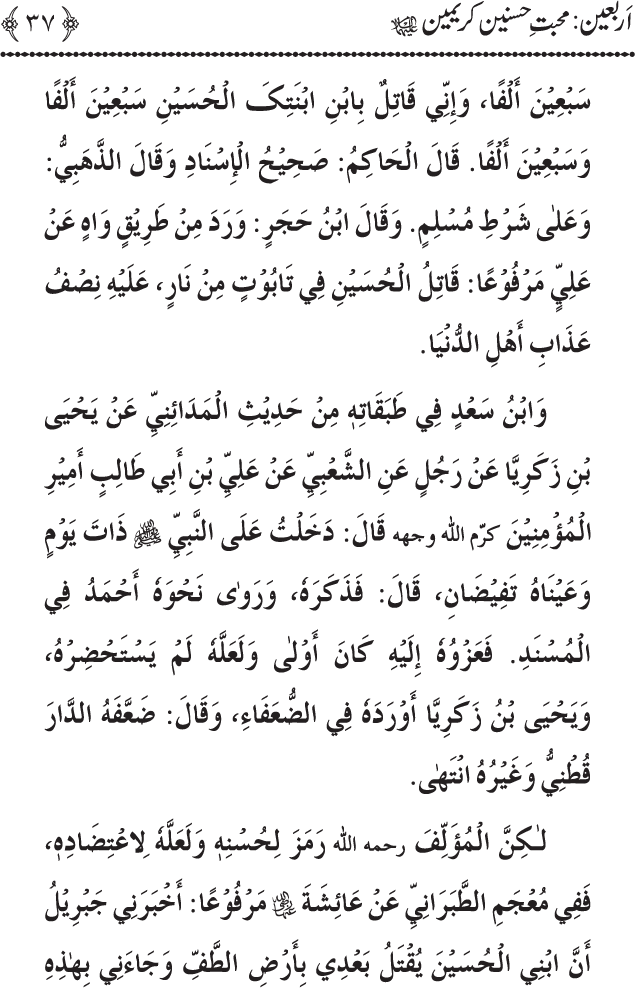 اَربعین: محبتِ حسنین کریمین علیہما السلام ﴿۳۷﴾
سَبْعِيْنَ أَلْفًا، وَإِنِّي قَاتِلٌ بِابْنِ ابْنَتِكَ الْحُسَيْنِ سَبْعِيْنَ أَلْفًا
وَسَبْعِيْنَ أَلْفًا. قَالَ الْحَاكِمُ: صَحِيْحُ الْإِسْنَادِ وَقَالَ الذَّهَبِيُّ:
وَعَلٰى شَرْطِ مُسْلِمٍ. وَقَالَ ابْنُ حَجَرٍ: وَرَدَ مِنْ طَرِيْقٍ وَاهٍ عَنْ
عَلِيٍّ مَرْفُوْعًا: قَاتِلُ الْحُسَيْنِ فِي تَابُوْتٍ مِنْ نَارٍ، عَلَيْهِ نِصْفُ
عَذَابِ أَهْلِ الدُّنْيَا.
وَابْنُ سَعْدٍ فِي طَبَقَاتِهٖ مِنْ حَدِيْثِ الْمَدَائِنِيِّ عَنْ يَحْيَى
بْنِ زَكَرِيَّا عَنْ رَجُلٍ عَنِ الشَّعْبِيِّ عَنْ عَلِيِّ بْنِ أَبِي طَالِبٍ أَمِيْرِ
الْمُؤْمِنِيْنَ كرّم الله وجهه قَالَ: دَخَلْتُ عَلَى النَّبِيِّ ﷺ ذَاتَ يَوْمٍ
وَعَيْنَاهُ تَفِيْضَانِ، قَالَ: فَذَكَرَهٗ، وَرَوٰى نَحْوَهٗ أَحْمَدُ فِي
الْمُسْنَدِ. فَعَزْوُهٗ إِلَيْهِ كَانَ أَوْلٰى وَلَعَلَّهٗ لَمْ يَسْتَحْضِرْهُ،
وَيَحْيَى بْنُ زَكَرِيَّا أَوْرَدَهٗ فِي الضُّعَفَاءِ، وَقَالَ: ضَعَّفَهُ الدَّارَ
قُطْنِيُّ وَغَيْرُهُ انْتَهٰى.
لٰكِنَّ الْمُؤَلِّفَ رحمه الله رَمَزَ لِحُسْنِهٖ وَلَعَلَّهٗ لِاعْتِضَادِهٖ،
فَفِي مُعْجَمِ الطَّبَرَانِيِّ عَنْ عَائِشَةَ رضی اللہ عنہا مَرْفُوْعًا: أَخْبَرَنِي جَبْرِيْلُ
أَنَّ ابْنِي الْحُسَيْنَ يُقْتَلُ بَعْدِي بِأَرْضِ الطَّفِّ وَجَاءَنِي بِهٰذِهِ